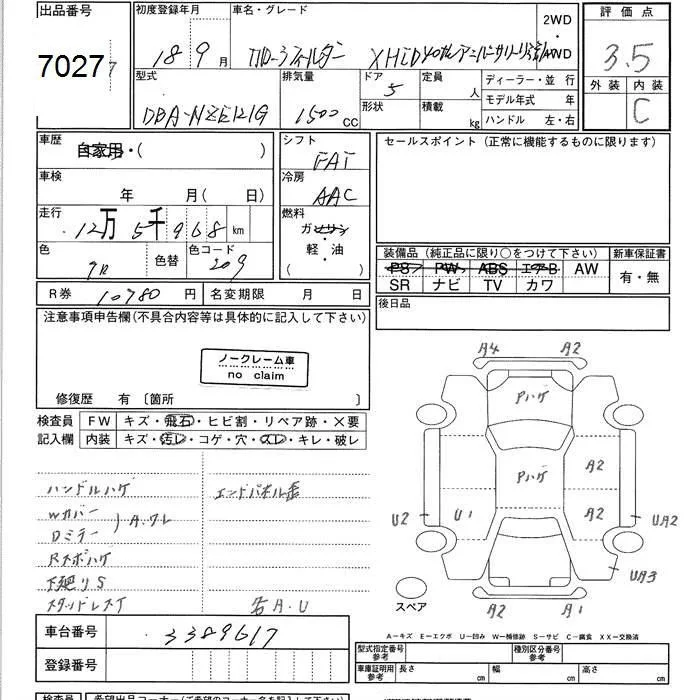 出品番号
7027
初度登録年月
18 9月
車名・グレード
2WD
評価点
3.5
外装 内装
C
型式
DBA-NZE121G
排気量
1500 CC
ドア
5
形状
定員
人
積載
kg
ディーラー・並行
モデル年式 年
ハンドル 左・右
車歴
自家用・( )
車検
年 月( 日)
走行
12万5千968 km
色
色替
色コード
209
シフト
FAT
冷房
AAC
燃料
ガソリン
軽・油
( )
セールスポイント (正常に機能するものに限ります)
装備品 (純正品に限り○をつけて下さい)
PS PW ABS エアーB AW
SR ナビ TV カワ
新車保証書
有・無
R券 10780 円
名変期限 月 日
後日品
注意事項申告欄(不具合内容等は具体的に記入して下さい)
ノークレーム車
no claim
修復歴 有 〔箇所 〕
検査員
記入欄
FW キズ・飛石・ヒビ割・リペア跡・×要
内装 キズ・汚レ・コゲ・穴・スレ・キレ・破レ
ハンドルハゲ
Wカバー
Dミラー
A.ワレ
下廻りS
スタッドレス
エンドパネル歪
各A・U
A4 A2
Pハゲ
Pハゲ
A2
U2 U1 A2 UA2
UA3
A2 A1
スペア
A-キズ E-エクボ U-凹み W-補修跡 S-サビ C-腐食 XX-交換済
車台番号
3389617
登録番号
型式指定番号
参考
種別区分番号
参考
車庫証明用
参考
長さ cm
幅 cm
高さ cm